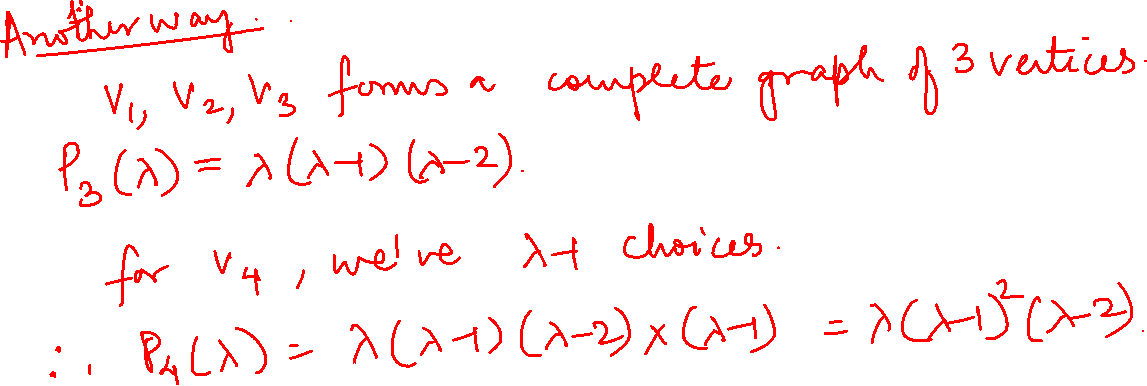 Another way.
V₁, V₂, V₃ forms a complete graph of 3 vertices.
P₃(λ) = λ(λ-1)(λ-2).
for V₄, we've λ-1 choices.
∴ P₄(λ) = λ(λ-1)(λ-2)×(λ-1) = λ(λ-1)²(λ-2).